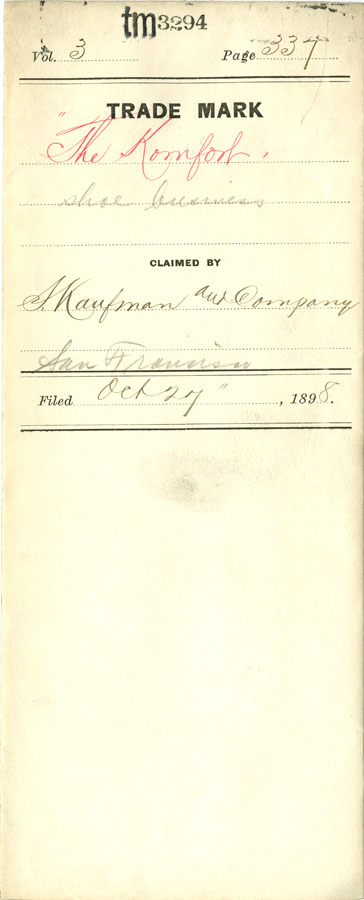 tm3294
Vol. 3 Page 337
TRADE MARK
"The Komfort.
shoe business
CLAIMED BY
S. Kaufman and Company
San Francisco
Filed Oct 27", 1898.